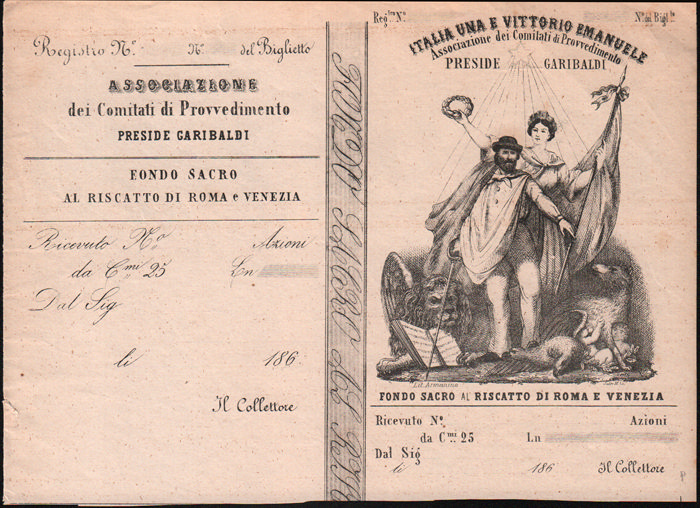 Registro N.º N.º del Biglietto
ASSOCIAZIONE
dei Comitati di Provvedimento
PRESIDE GARIBALDI
FONDO SACRO
AL RISCATTO DI ROMA e VENEZIA
Ricevuto N.º Azioni
da C.mi 25 Ln
Dal Sig
li 186
Il Collettore
FONDO SACRO AL
Reg.tro N.º N.º del Bigl.to
ITALIA UNA E VITTORIO EMANUELE
Associazione dei Comitati di Provvedimento
PRESIDE GARIBALDI
Lit. Armanino
FONDO SACRO AL RISCATTO DI ROMA E VENEZIA
Ricevuto N.º Azioni
da C.mi 25 Ln
Dal Sig
li 186 Il Collettore